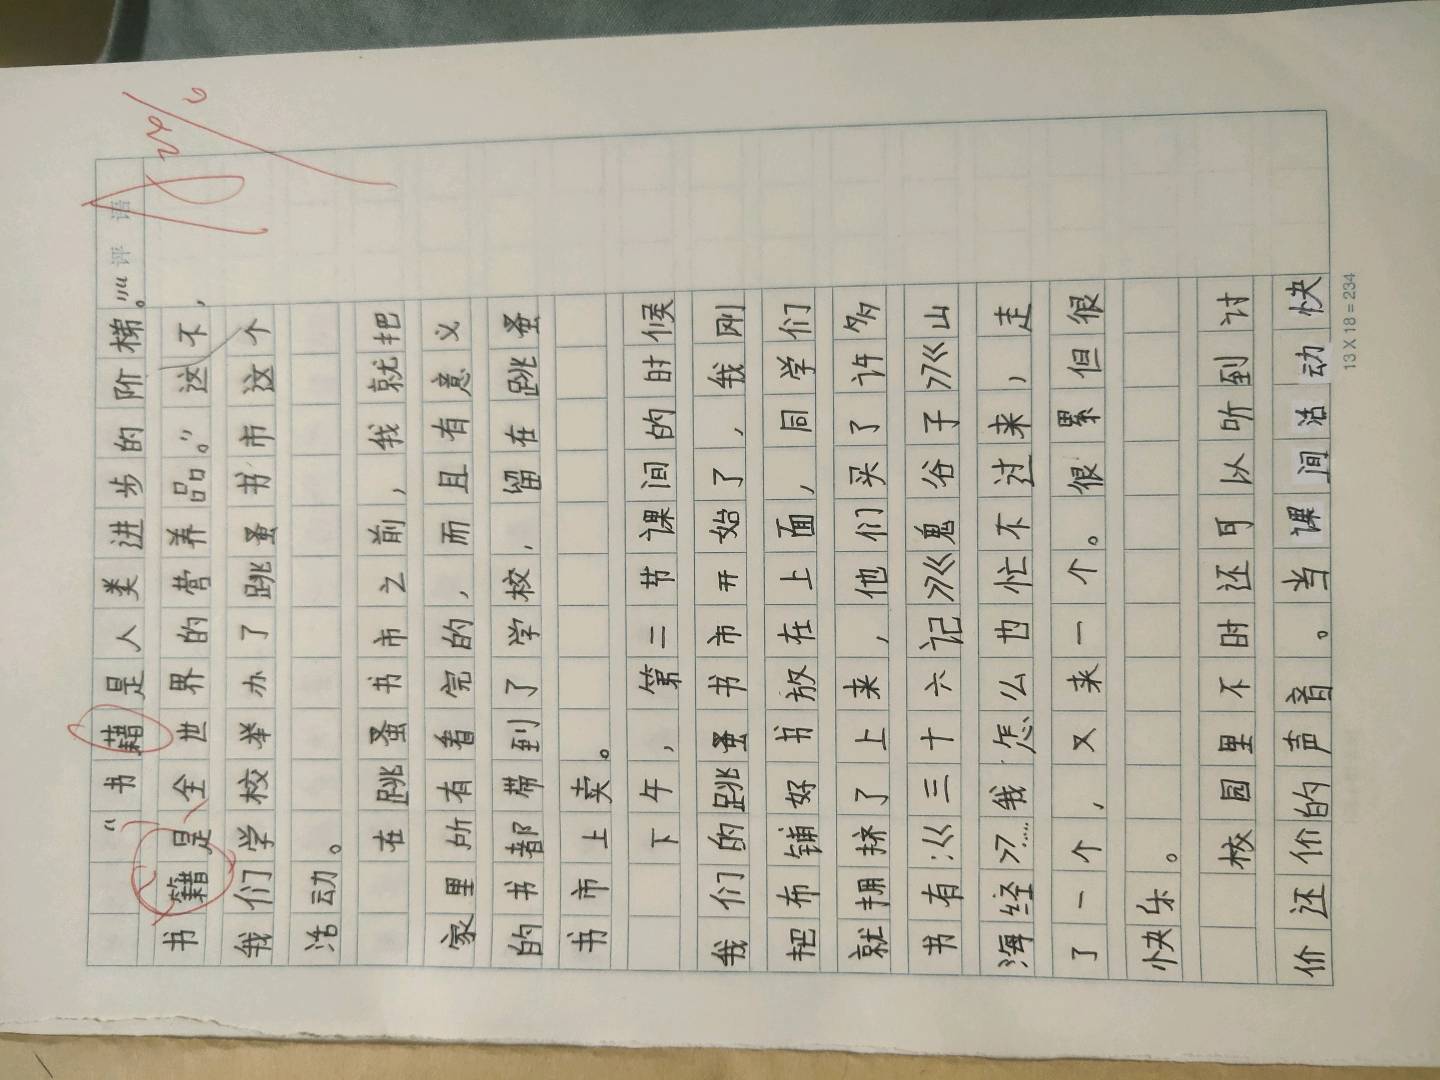 “书籍是人类进步的阶梯。”“
书籍是全世界的营养品。”这不，
我们学校举办了跳蚤书市这个
活动。
在跳蚤书市之前，我就把
家里所有看完的，而且有意义
的书都带到了学校，留在跳蚤
书市上卖。
下午，第二节课间的时候
我们的跳蚤书市开始了，我刚
把布铺好书放在上面，同学们
就拥挤了上来，他们买了许多
书有：《三十六记》《鬼谷子》《山
海经》……我怎么也忙不过来，走
了一个，又来一个。很累但很
快乐。
校园里不时还可以听到讨
价还价的声音。当课间活动快
评语
13×18=234